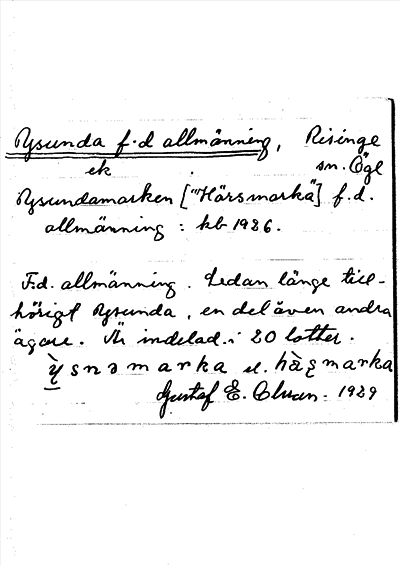 Rysunda f.d allmänning, Risinge
ek sn. Ögl
Rysundamarken ["Härsmarka"] f.d.
allmänning : kb 1926.
F.d. allmänning. Sedan länge till-
hörigt Rysunda, en del även andra
ägare. Är indelad i 20 lotter.
ỳsnəmarka el. hæ̀ʂmarka
Gustaf E. Olsson. 1929